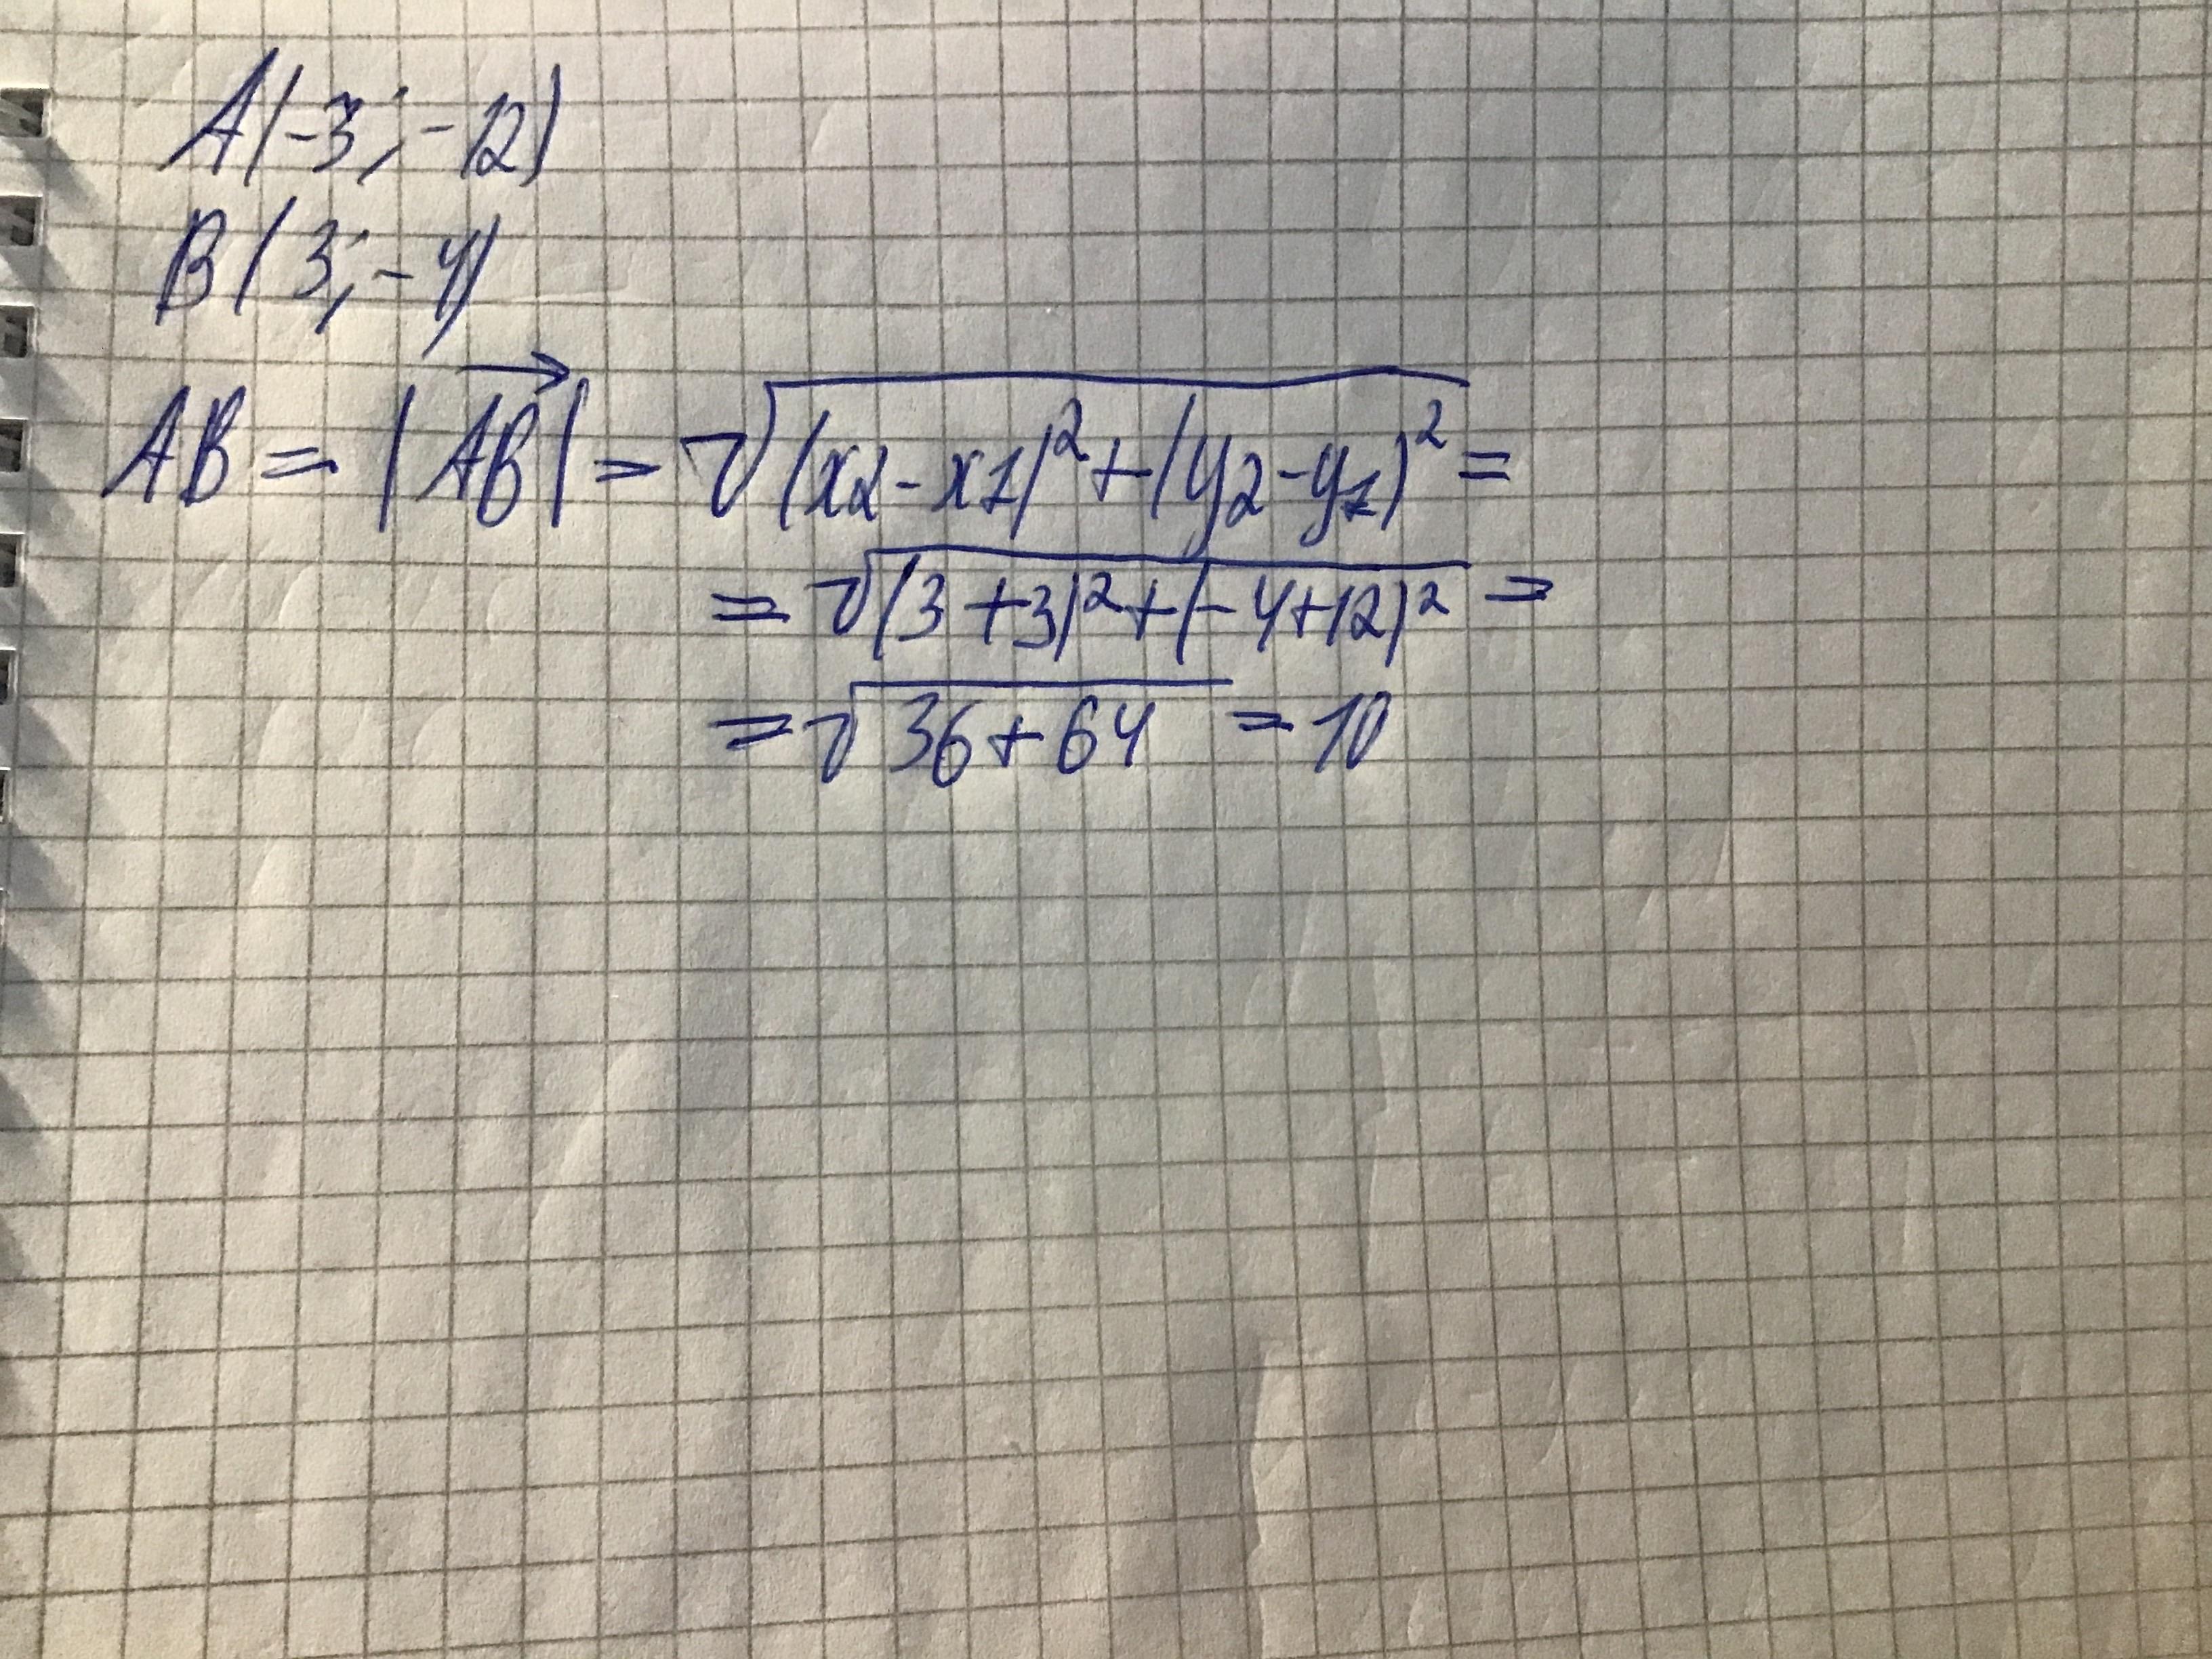 A(-3; -12)
B(3; -4)
AB = |\overrightarrow{AB}| = √(x2-x1)²+(y2-y1)² =
= √(3+3)²+(-4+12)² =
= √36+64 = 10